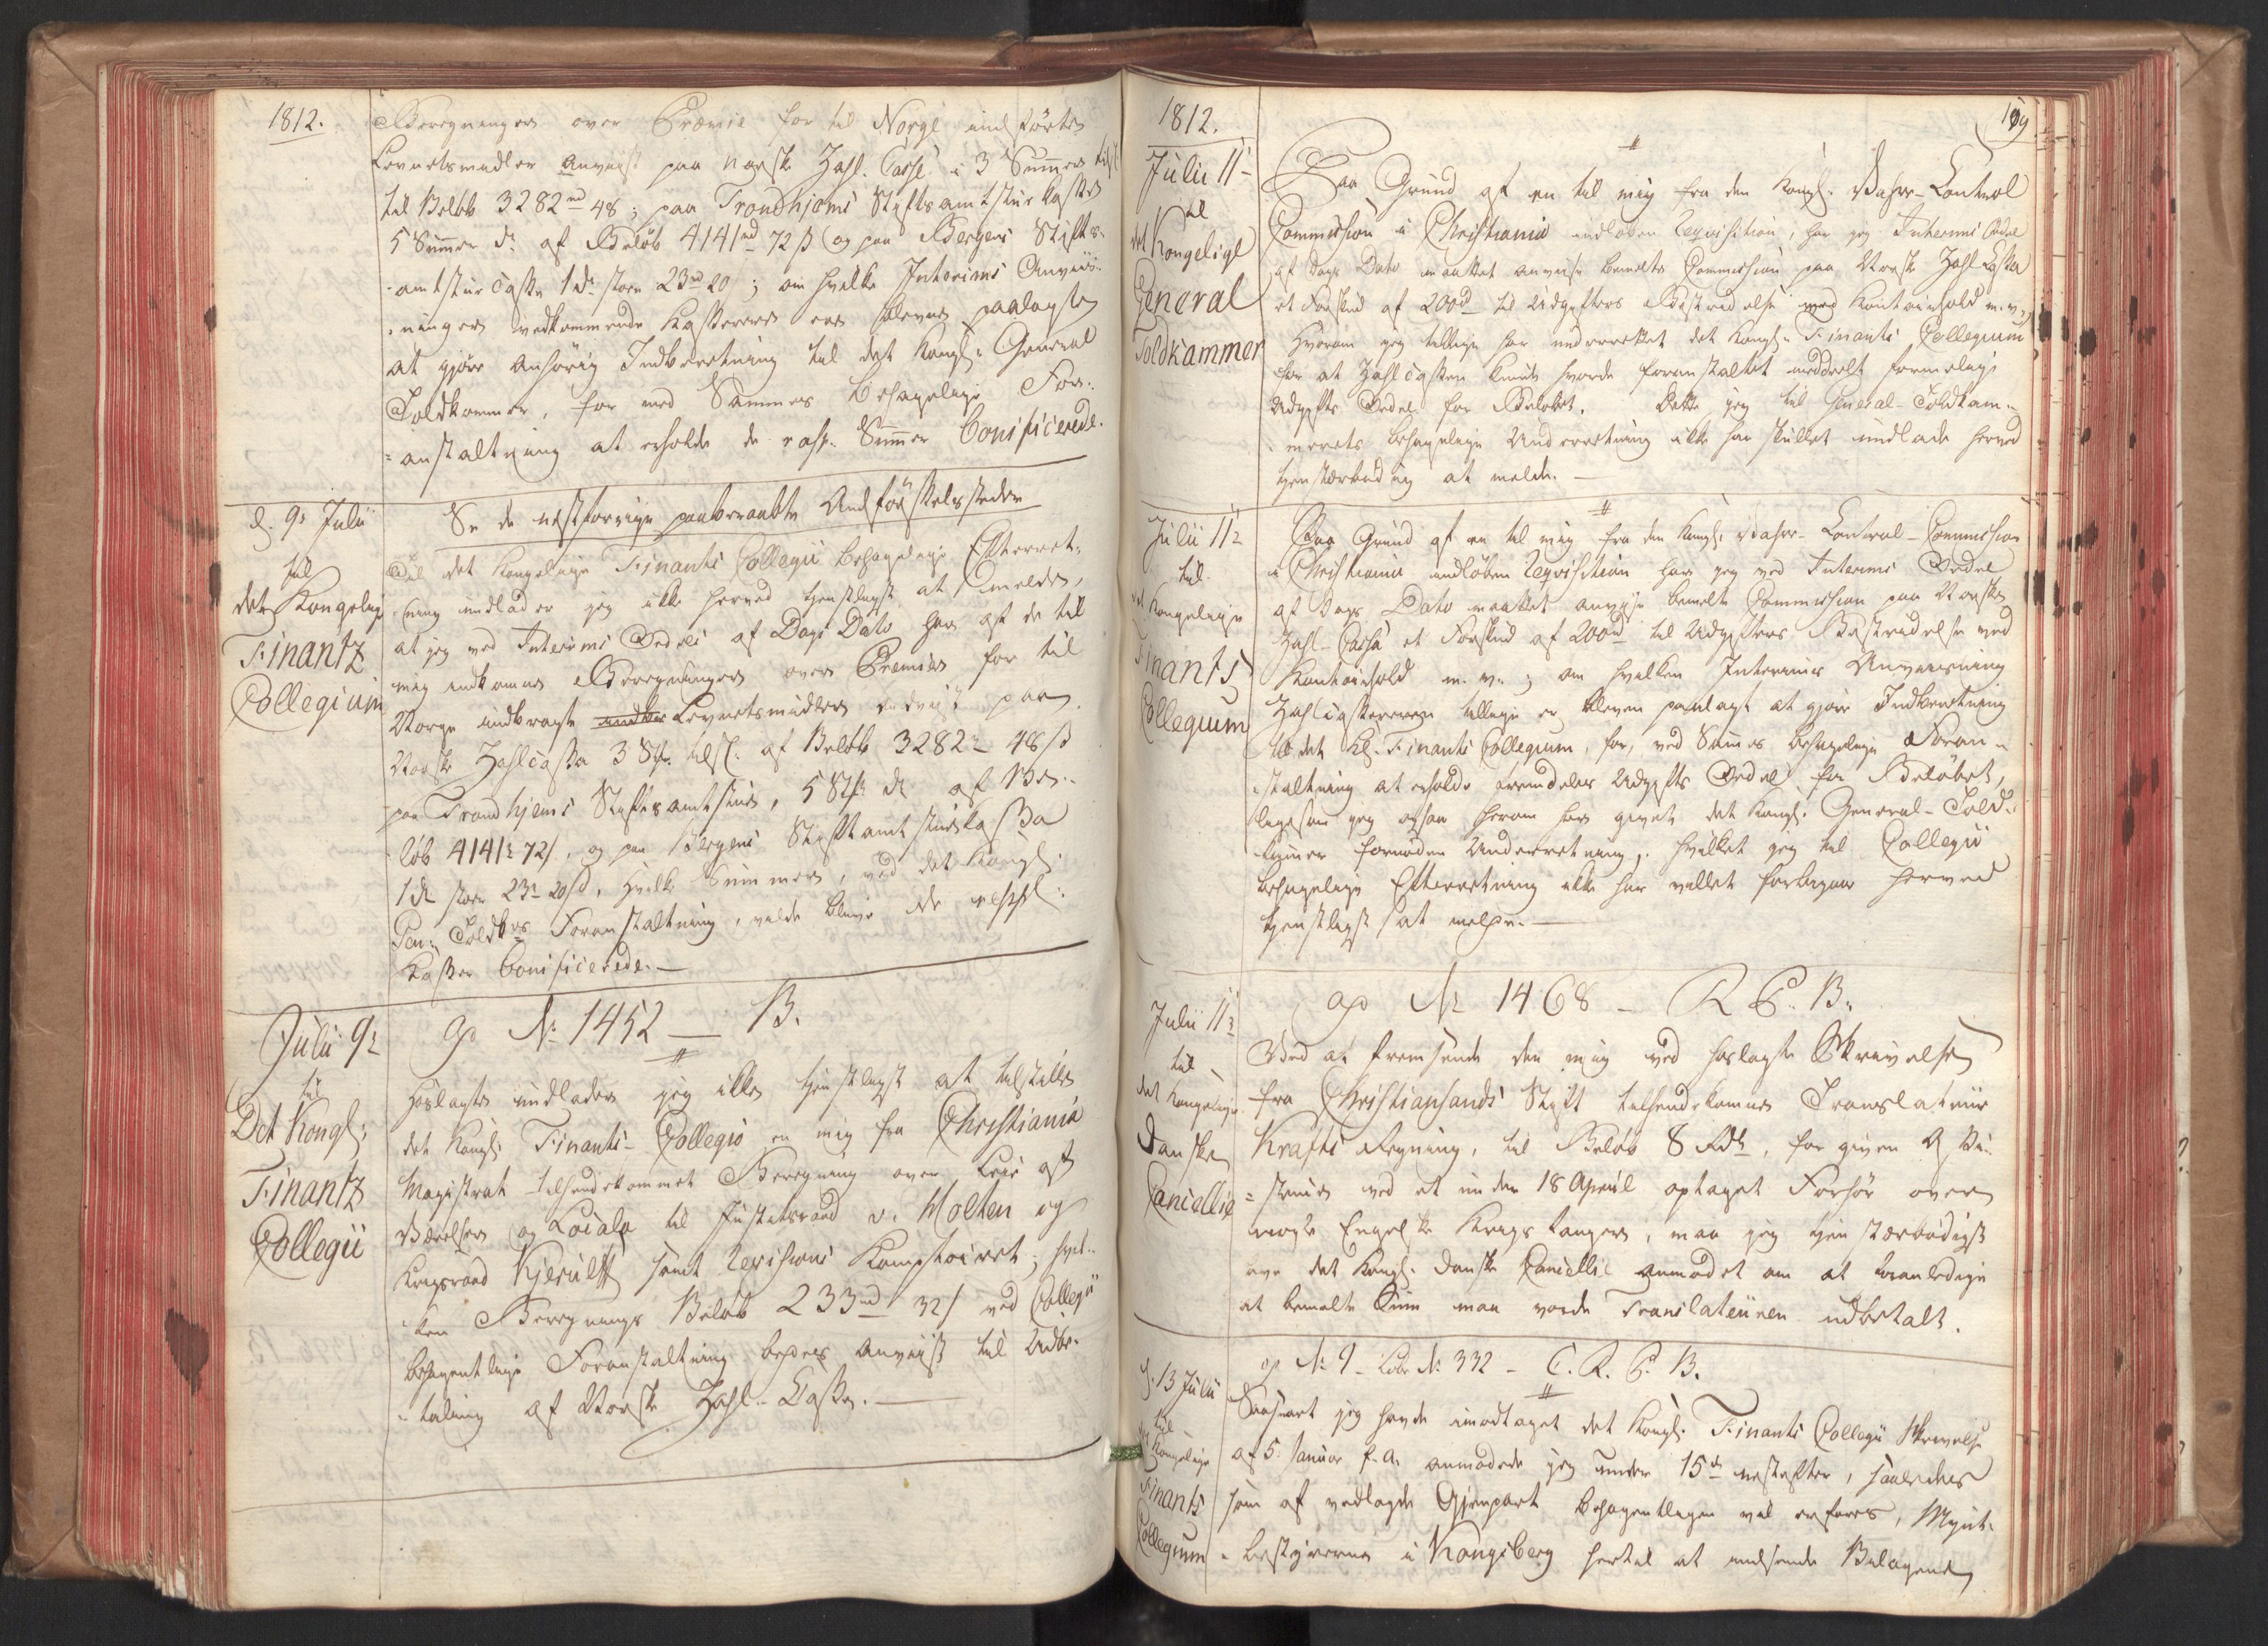 1812.
Beregninger over Præmie for til Norge indførte
Levnetsmidler anviist paa Norske Zahl-Casse i 3 Summer
til Beløb 3282 rd 48; paa Trondhjems Stiftsamtstue Kassen
5 Summer dº af Beløb 4141 rd 72 ß og paa Bergens Stifts-
amtstue Casse 1 dº stor 23 rd 20; om hvilke Interims Anviis-
ninger vedkommende Kasserere ere blevne paalagte
at gjøre anhørig Indberetning til det Kongl. General
Toldkammer, for ved Sammes behagelige For-
anstaltning at erholde de resp. Summer bonificerede.
d. 9de Julii
til
det Kongelige
Finantz
Collegium
Se de næstforrige paaberaabte Udførselssteder
Til det Kongelige Finants Collegii behagelige Efterret-
ning undlader jeg ikke herved tjenstligst at melde,
at jeg ved Interims Ordres af Dags Dato har af de til
mig indkomne Beregninger over Præmier for til
Norge indbragte Levnetsmidler anviist paa
Norske Zahlcassa 3 af Beløb 3282 48 ß
paa Trondhjems Stiftsamtstue, 5 dº af Be-
løb 4141 72 ß, og paa Bergens Stiftamtstuekassa
1 dº stor 23 20 ß, hvilke Summer, ved det Kongl.
Gen: Toldk Foranstaltning, vilde blive de
Kasser bonificerede.
Julii 9de
til
Det Kongl.
Finantz
Collegii
ap No 1452 — B.
Hoslagte undlader jeg ikke tjenstligst at tilstille
det Kongl. Finants-Collegio en mig fra Christiania
Magistrat tilhendekommet Beregning over Leie af
Værelser og Locale til Justitsraad v. Holten og
Krigsraad Kjerulff samt Revisions Komptoiret; hvil-
ken Beregnings Beløb 233 rd 32 ß ved Collegii
behagentlige Foranstaltning bedes anviist til Udbe-
taling af Norske Zahl-Cassa.
1812.
Julii 11te
til
det Kongelige
General
Toldkammer
Paa Grund af en til mig fra den Kongl. Control
Commission i Christiania indløben Reqvisition, har jeg Interims Ordre
af Dags Dato maattet anvise bemelte Commission paa Norske Zahl-Cassa
et Forskud af 200 rd til Udgifters Bestridelse ved Kontoirhold m. v.,
hvorom jeg tillige har underrettet det Kongl. Finants Collegium
for at Zahlcassen kunde vorde foranstaltet meddeelt formelige
Udgifts Ordre for Beløbet. Dette jeg til General-Toldkam-
merets behagelige Underretning ikke har skullet undlade herved
tjenstærbødig at melde. —
Julii 11te
til
det Kongelige
Finants
Collegium
Paa Grund af en til mig fra den Kongl. Control-Commission
i Christiania indløben Reqvisition har jeg ved Interims Ordre
af Dags Dato maattet anvise bemelte Commission paa Norske
Zahl-Cassa et Forskud af 200 rd til Udgifters Bestridelse ved
Kontoirhold m. v.; om hvilken Interims Anviisning
Zahlcassereren tillige er bleven paalagt at gjøre Indberetning
til det Kgl. Finants Collegium, for, ved Sammes behagelige Foran-
staltning at erholde Udgifts Ordre for Beløbet,
ligesom jeg ogsaa herom har givet det Kongl. General-Told-
kammer fornøden Underretning, hvilket jeg til Collegii
behagelige Efterretning ikke har villet forbigaae herved
tjenstligst at melde. —
Julii 11te
til
det Kongelige
Danske
Cancellie
ap No 1468 — R P. B.
Ved at fremsende den mig ved hoslagte Skrivelse
fra Christiansands Stift tilhendekomne Translateur
Krafts Regning, til Beløb 8 Rd, for given Assi-
stence ved et under 18 April optaget Forhør over
nogle Engelske Krigsfanger, maa jeg tjenstærbødigst
have det Kongl. Danske Cancellie anmodet om at foranledige
at bemelte Sum maa vorde Translateuren udbetalt.
d. 13 Julii
til
det Kongelige
Finants
Collegium
ap No 9 — No 332 — C. R. P. B.
Saasnart jeg havde imodtaget det Kongl. Finants Collegii Skrivelse
af 5. Januar f. a. anmodede jeg under 15de næstefter, saaledes
som af vedlagde Gjenpart behagentligen vil erfares, Mynt-
bestyrerne i Kongsberg hertil at indsende Bilagene